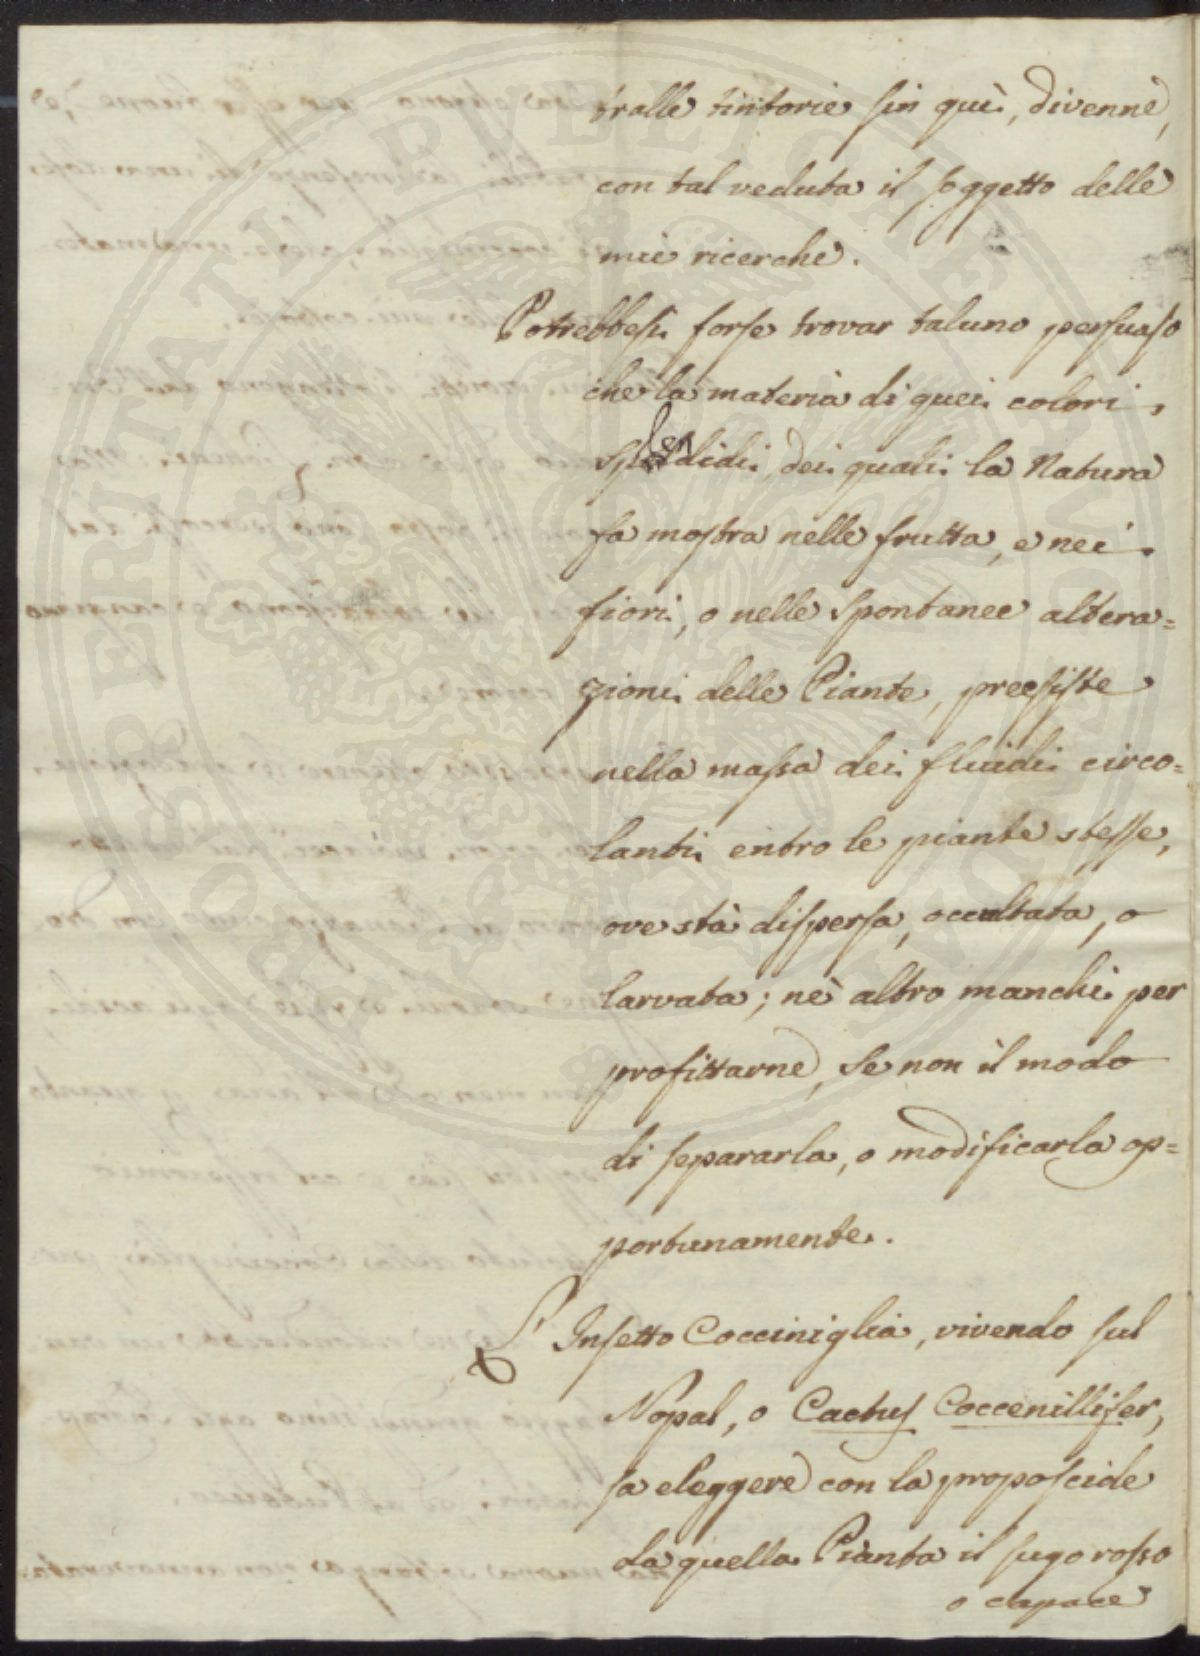 tralle tintorie sin quì, divenne,
con tal veduta il soggetto delle
mie ricerche.
Potrebbesi forse trovar taluno persuaso
che la materia di quei colori,
splendidi, dei quali la Natura
fa mostra nelle frutta, e nei
fiori, o nelle spontanee altera=
zioni delle Piante, preesiste
nella massa dei fluidi circo=
lanti entro le piante stesse,
ove stà dispersa, occultata, o
larvata; nè altro manchi per
profittarne, se non il modo
di separarla, o modificarla op=
portunamente.
L'Insetto Cocciniglia, vivendo sul
Nopal, o Cactus Coccenillifer,
sa eleggere con la proposcide
da quella Pianta il sugo rosso
o capace
PROSPERITATI PVBLICAE AVGENDAE